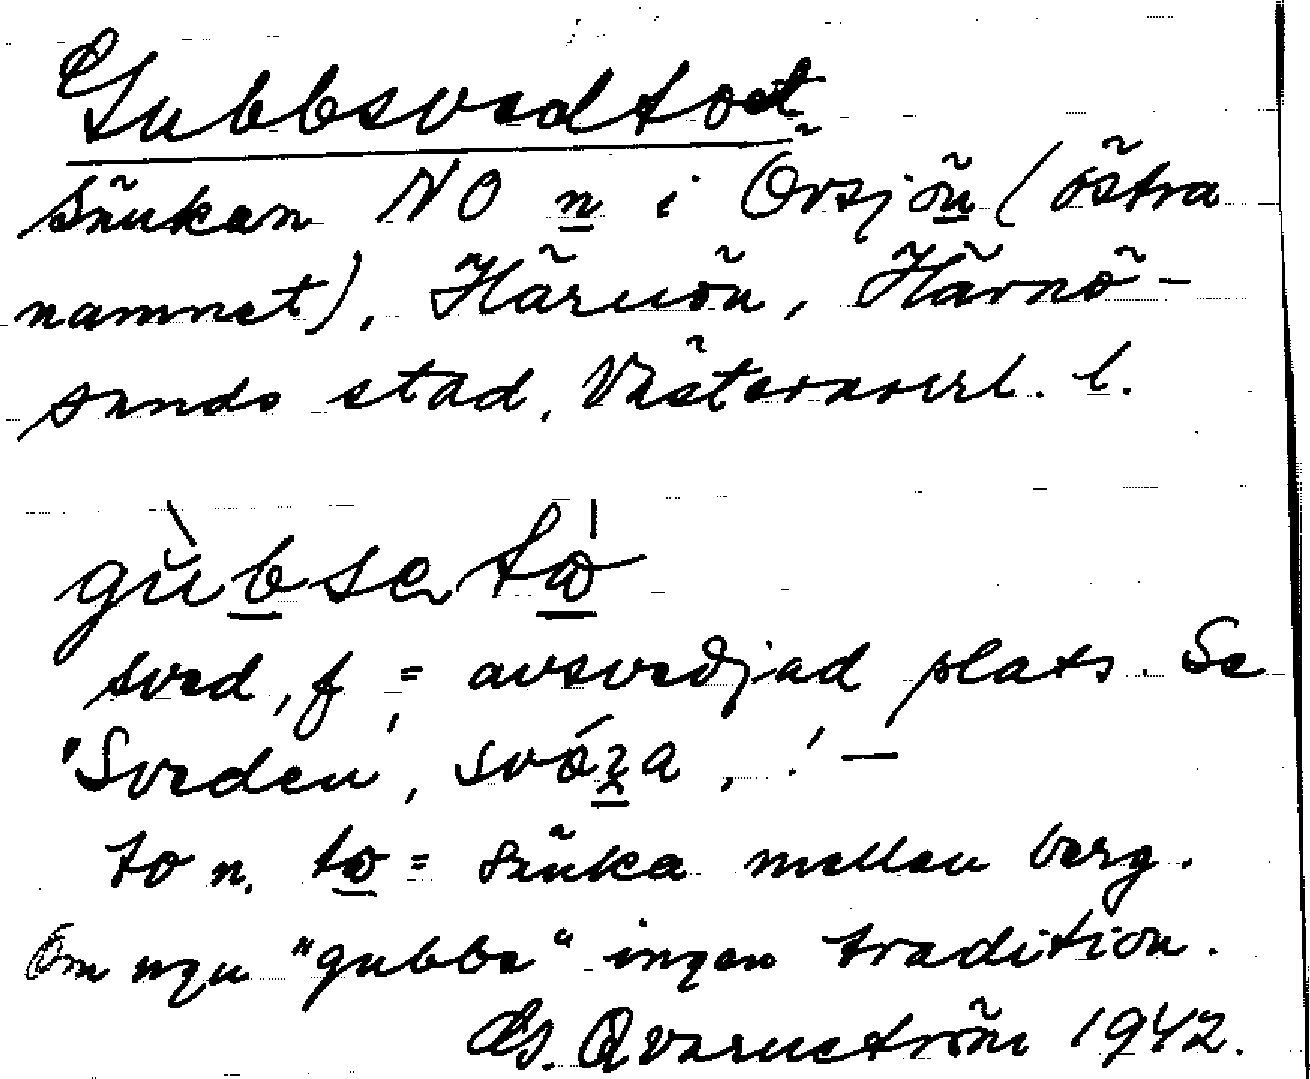 Gubbsvedtoet
sänkan NO n i Orsjön (östra
namnet), Härnön, Härnö-
sands stad, Västernorrl. l.
gubse to
sved, f = avsvedjad plats. Se
"Sveden,
to n. to = sänka mellan berg.
Om ngn "gubbe" ingen tradition.
Qvarnström 1942.